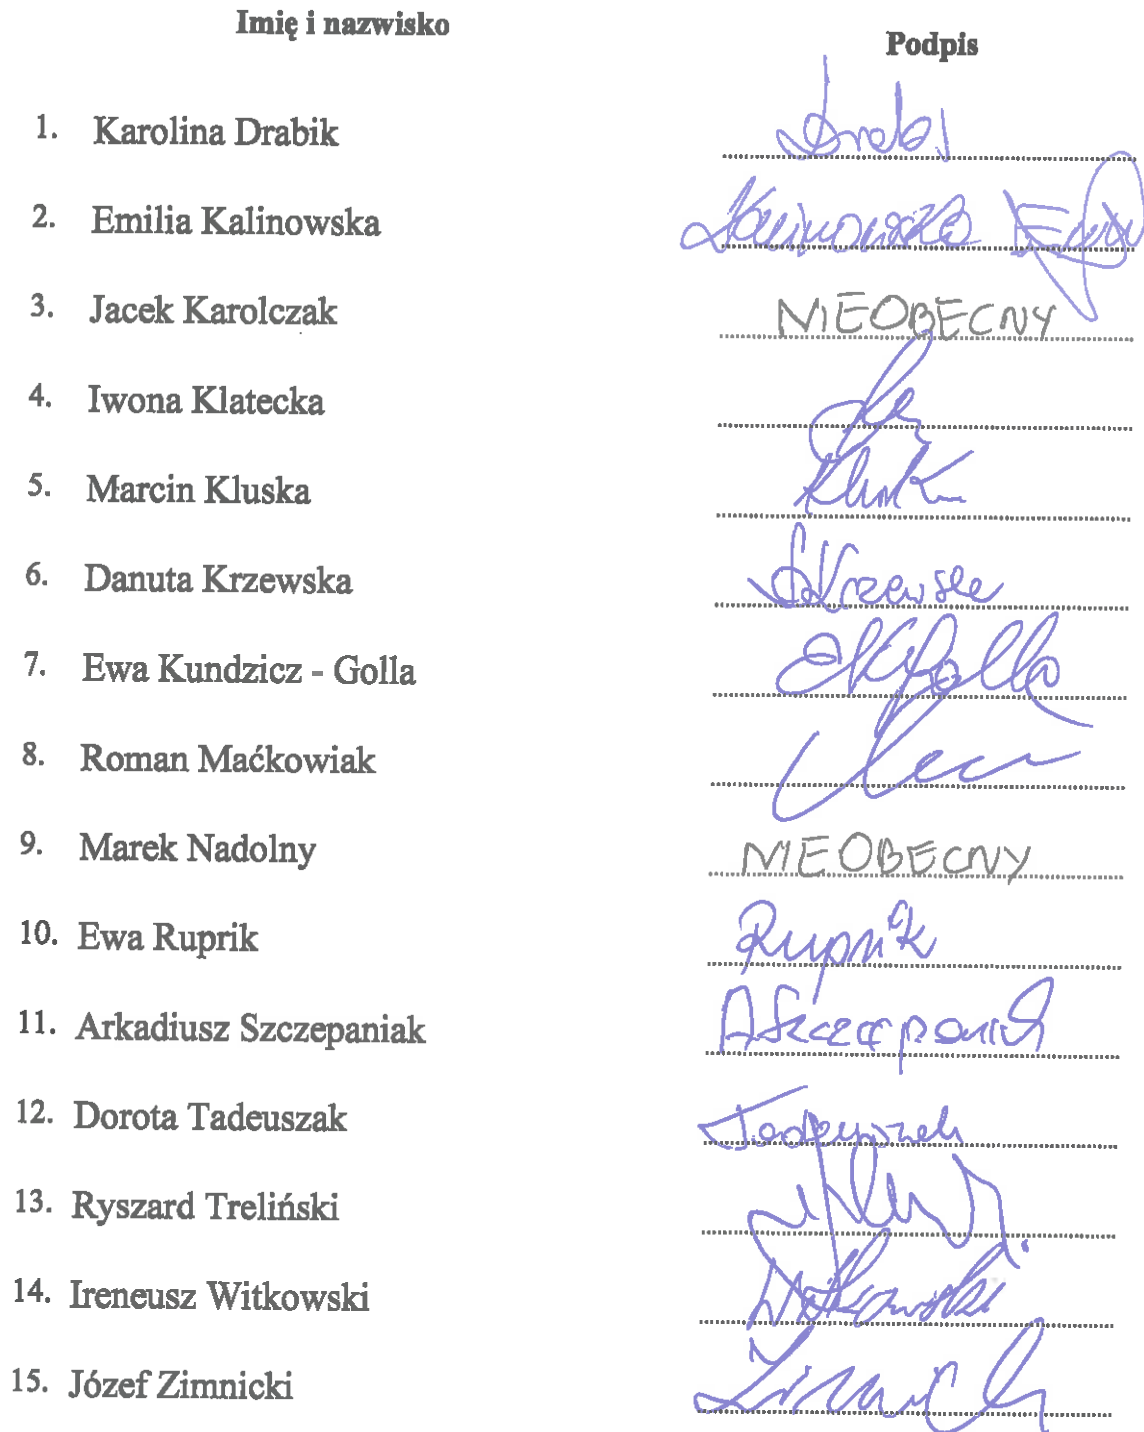 Imię i nazwisko
Podpis
1. Karolina Drabik
2. Emilia Kalinowska Kalinowska
3. Jacek Karolczak NIEOBECNY
4. Iwona Klatecka
5. Marcin Kluska
6. Danuta Krzewska
7. Ewa Kundzicz - Golla
8. Roman Maćkowiak
9. Marek Nadolny NIEOBECNY
10. Ewa Ruprik Rupnik
11. Arkadiusz Szczepaniak ASzczepaniak
12. Dorota Tadeuszak Tadeuszak
13. Ryszard Treliński
14. Ireneusz Witkowski Witkowski
15. Józef Zimnicki